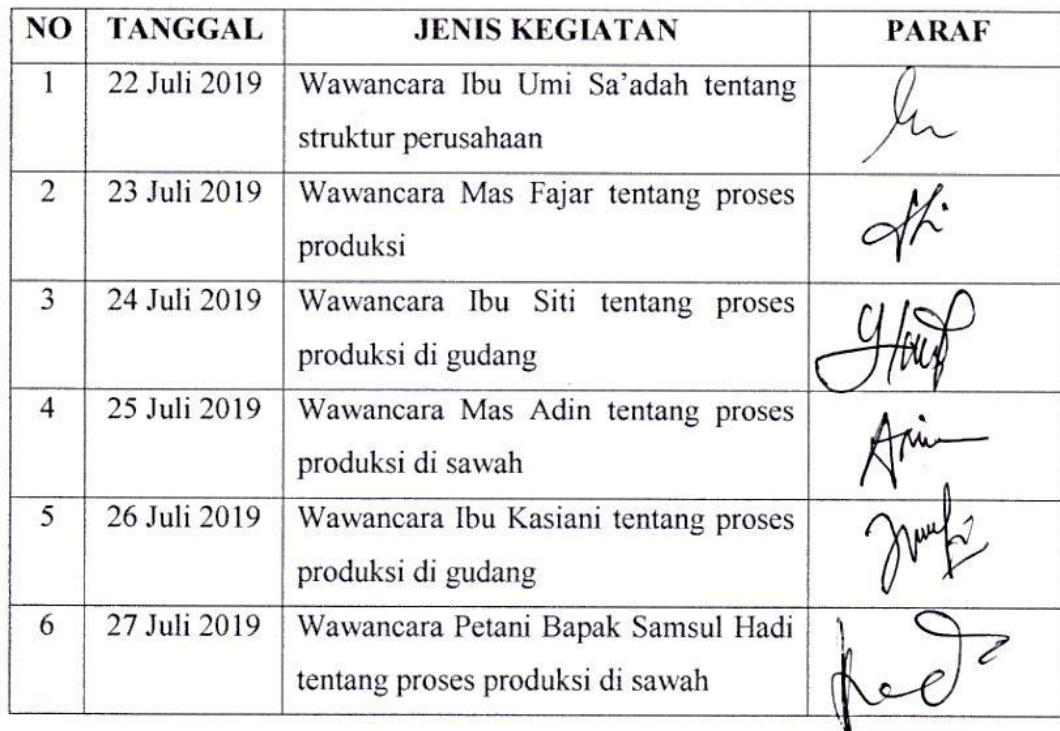 NO TANGGAL JENIS KEGIATAN PARAF
1 22 Juli 2019 Wawancara Ibu Umi Sa'adah tentang
struktur perusahaan
2 23 Juli 2019 Wawancara Mas Fajar tentang proses
produksi
3 24 Juli 2019 Wawancara Ibu Siti tentang proses
produksi di gudang
4 25 Juli 2019 Wawancara Mas Adin tentang proses
produksi di sawah
5 26 Juli 2019 Wawancara Ibu Kasiani tentang proses
produksi di gudang
6 27 Juli 2019 Wawancara Petani Bapak Samsul Hadi
tentang proses produksi di sawah